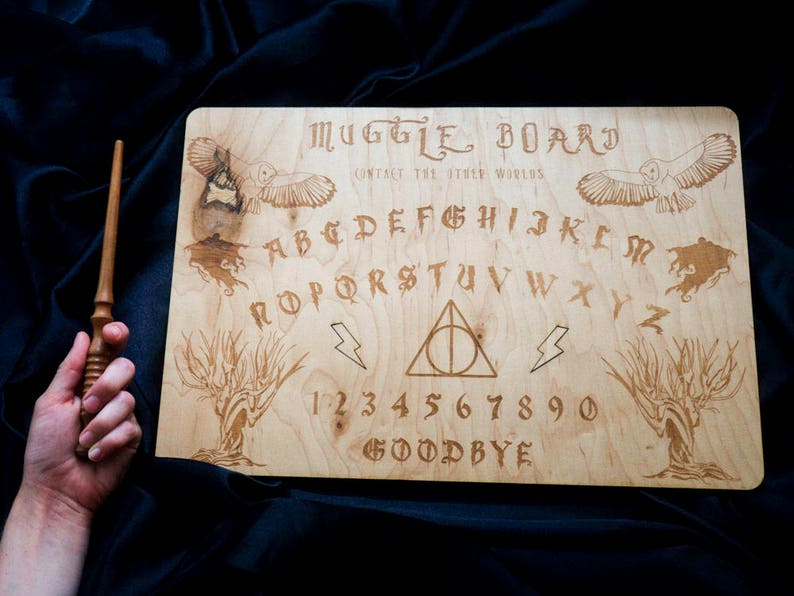 MUGGLE BOARD
CONTACT THE OTHER WORLDS
ABCDEFGHIJKLM
NOPQRSTUVWXYZ
1234567890
GOODBYE